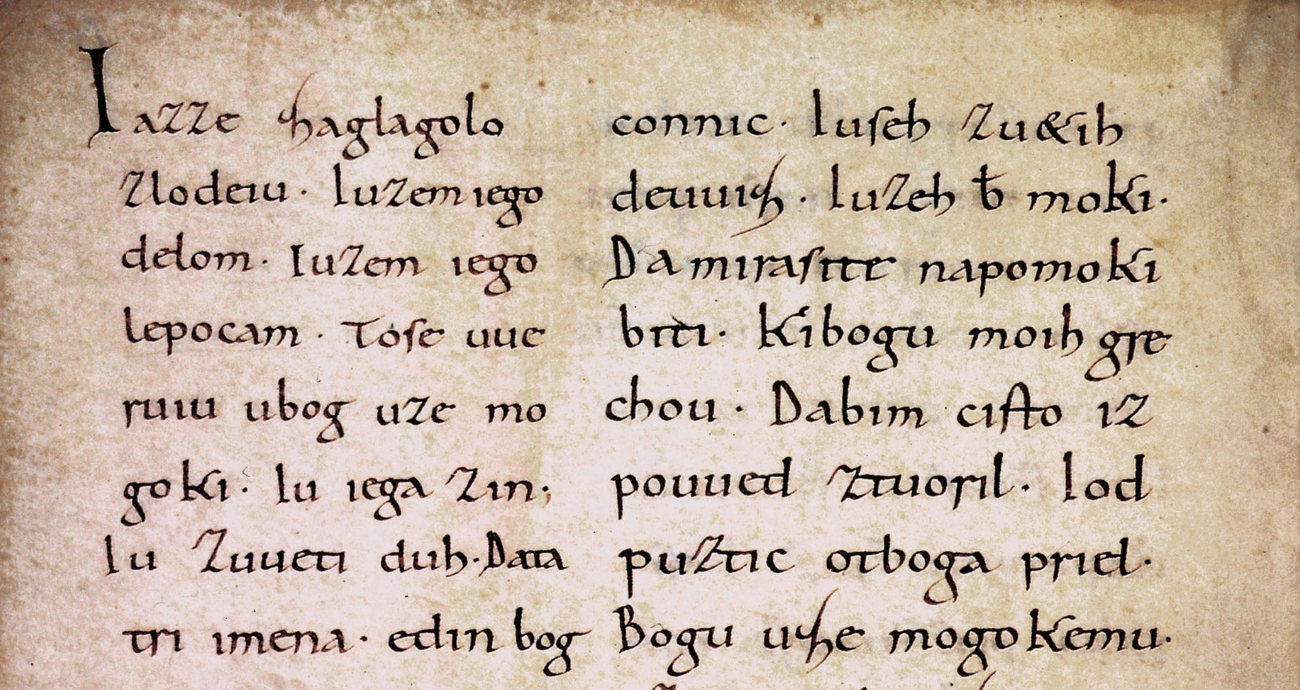 Iazze zaglagolo
Zlodeiu. Iuzem iego
delom. Iuzem iego
lepocam. Tose uue
ruiu ubog uze mo
goki. Iu iega Zin;
Iu Zuueti duh. Data
tri imena. edin bog
connic. Iuseh Zu&ih
deuuiz. Iuzeh ƀ moki.
Da mirasite napomoki
biti. Kibogu moih gre
chou. Dabim cisto iz
pouued ztuoril. Iod
puztic otboga priel.
Bogu uze mogokemu.